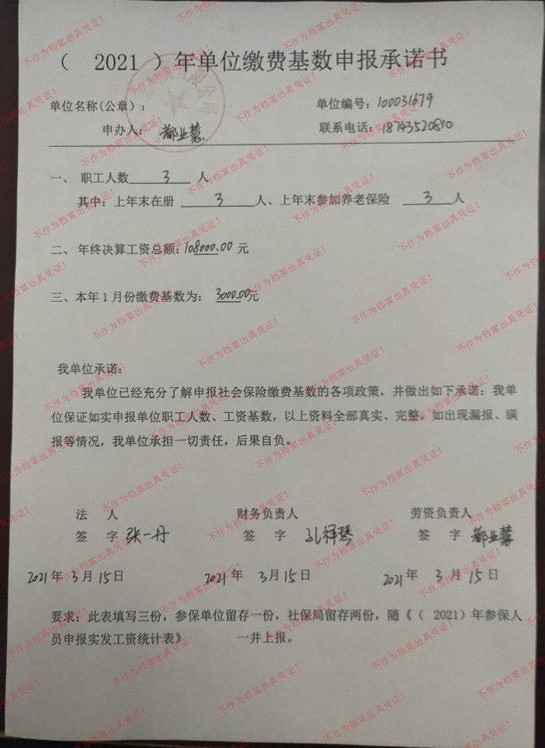 （ 2021 ）年单位缴费基数申报承诺书
单位名称(公章)：
单位编号：100031679
申办人：郝业慧
联系电话：18743520810
一、 职工人数 3 人
其中：上年末在册 3 人、上年末参加养老保险 3 人
二、 年终决算工资总额：108000.00 元
三、本年 1 月份缴费基数为： 3000.00元
我单位承诺：
我单位已经充分了解申报社会保险缴费基数的各项政策，并做出如下承诺：我单
位保证如实申报单位职工人数、工资基数，以上资料全部真实、完整。如出现漏报、瞒
报等情况，我单位承担一切责任，后果自负。
法 人 财务负责人 劳资负责人
签 字 张一丹 签 字 签 字 郝业慧
2021 年 3 月 15 日 2021 年 3 月 15 日 2021 年 3 月 15 日
要求：此表填写三份，参保单位留存一份，社保局留存两份，随《（ 2021）年参保人
员申报实发工资统计表》 一并上报。
不作为档案出具凭证！